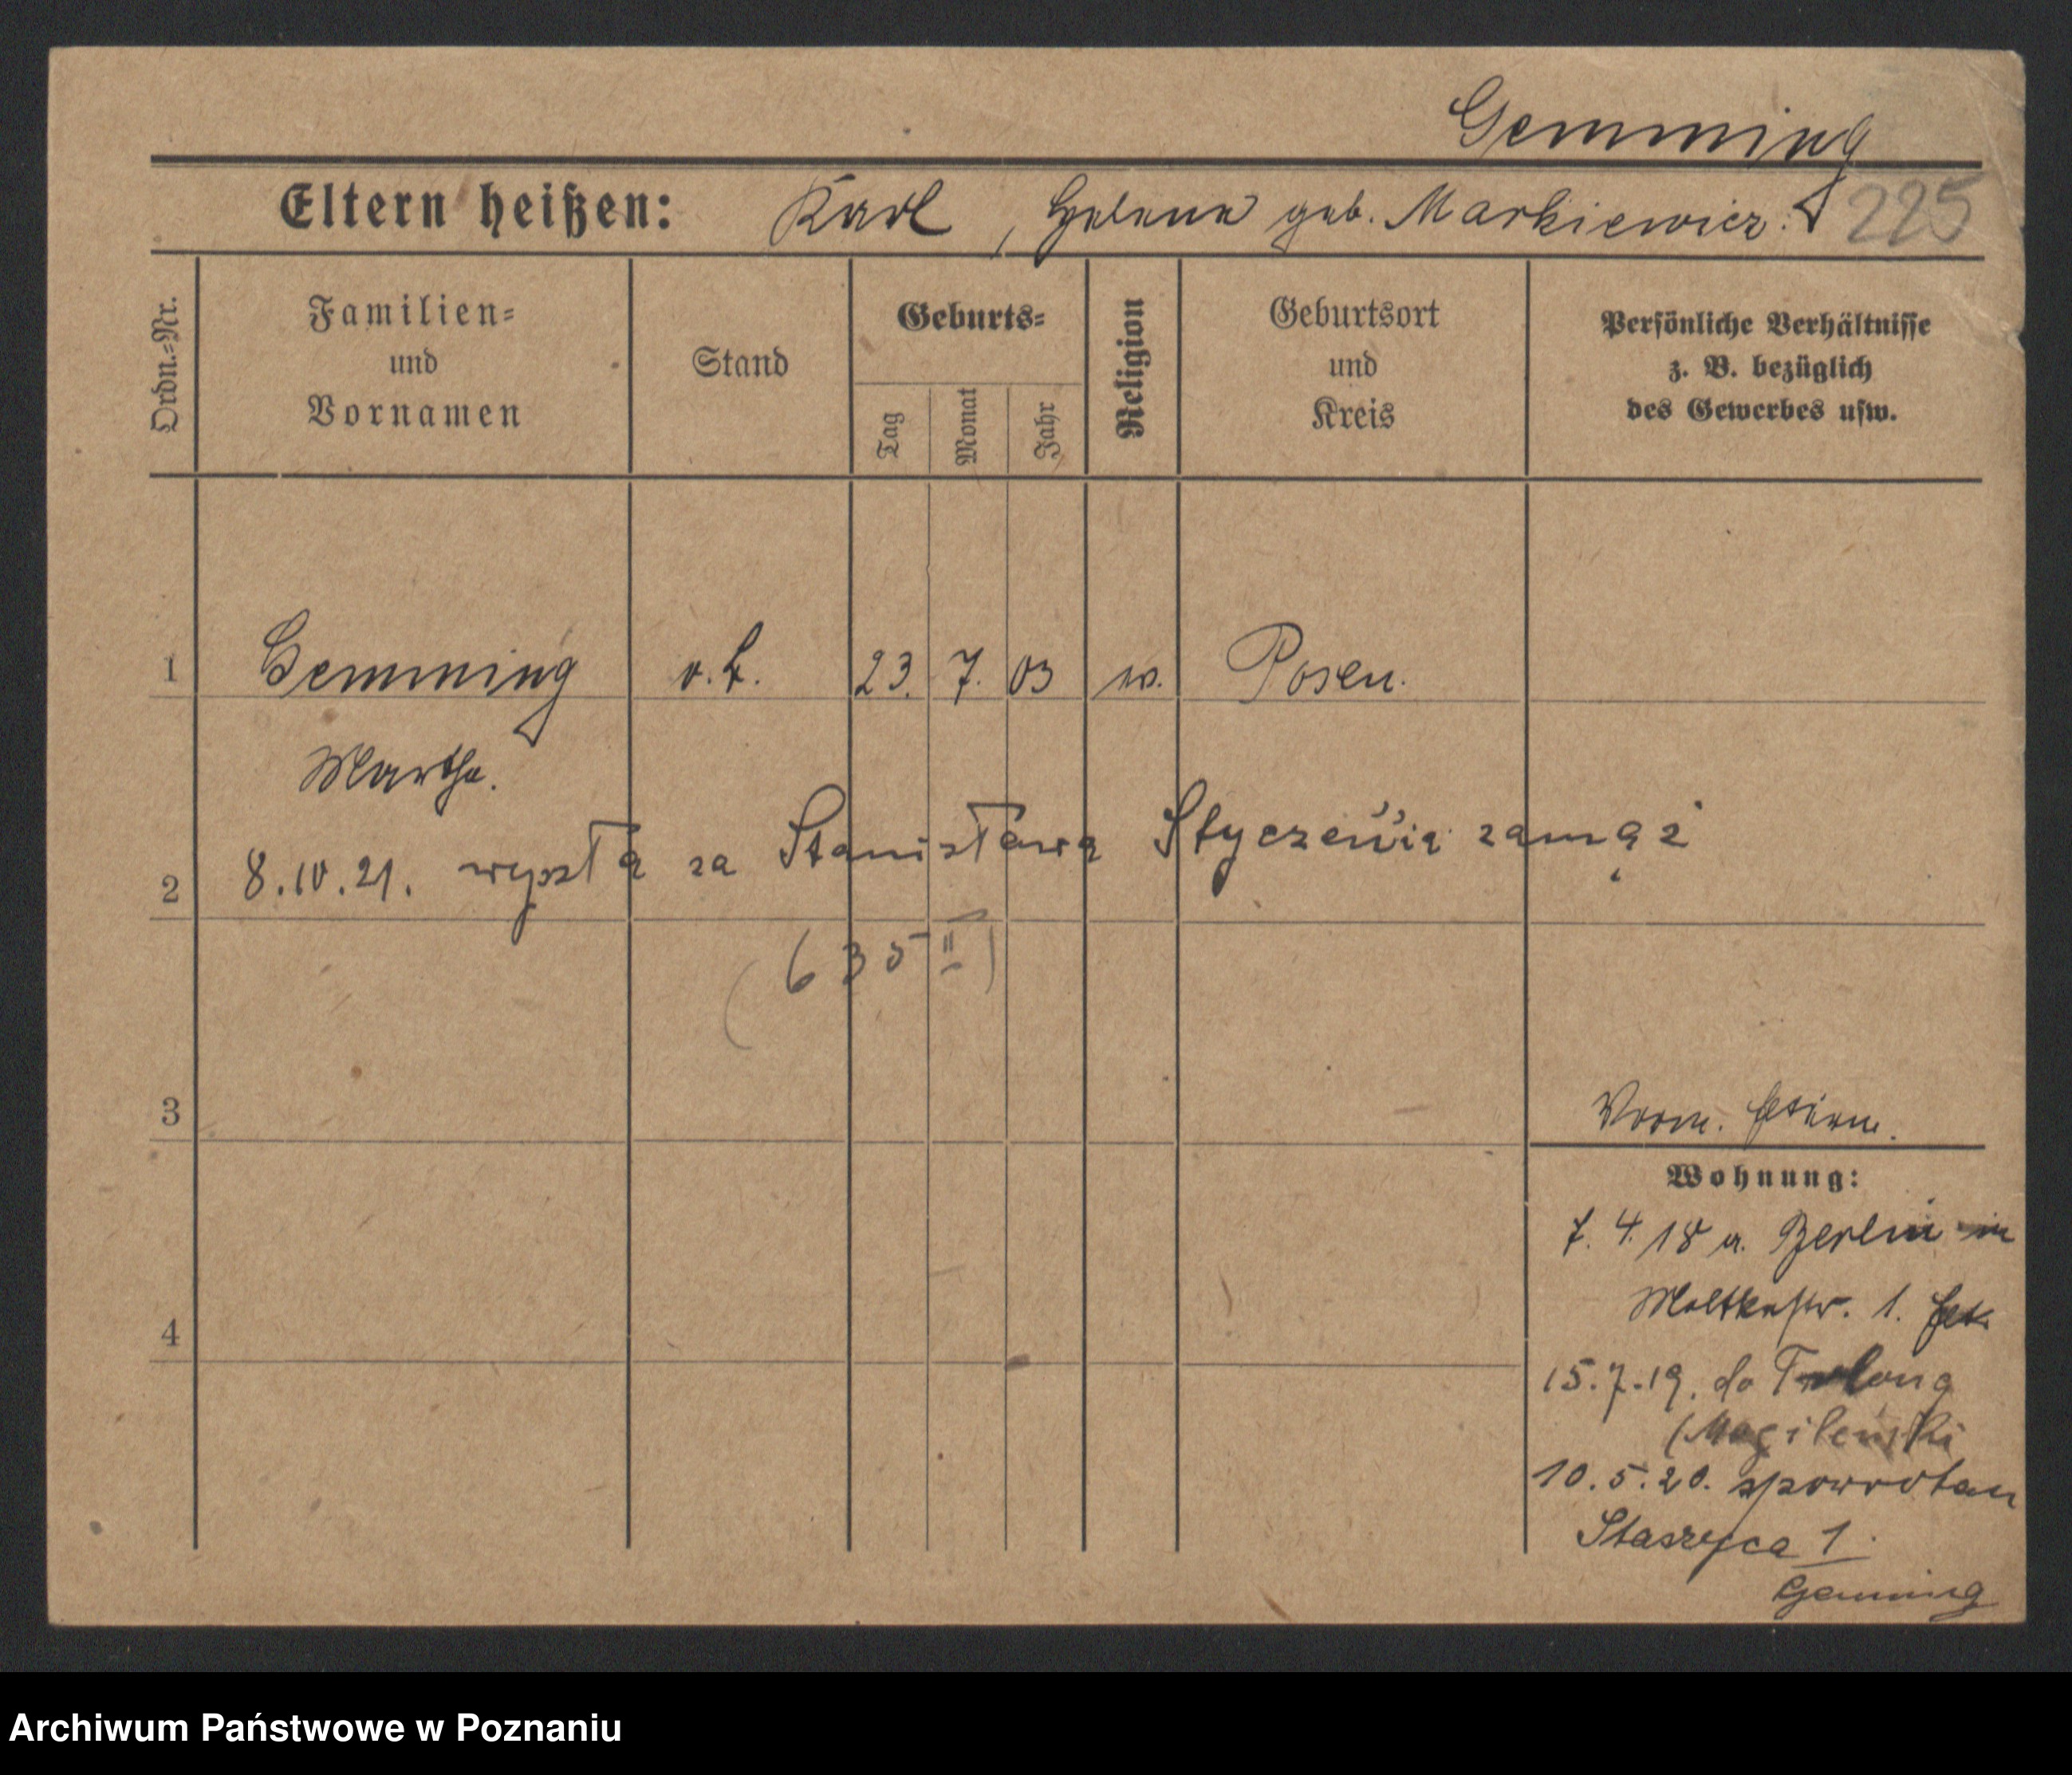 Gemming
Eltern heißen: Karl, Helene geb. Markiewicz. 225
Ordn.-Nr.
Familien-
und
Vornamen
Stand
Geburts-
Tag
Monat
Jahr
Religion
Geburtsort
und
Kreis
Persönliche Verhältnisse
z. B. bezüglich
des Gewerbes usw.
1 Gemming 23. 7. 03 Posen.
Martha.
2 8.10.21. wyszła za Stanisława Stycznia zamąż
(635 II)
3
Vorm.
Wohnung:
7. 4. 18 a. Berlin in
Moltkestr. 1.
4
15.7.19. do
(Mogileński
10.5.20. spowrotem
Staszyca 1
Gemming
Archiwum Państwowe w Poznaniu